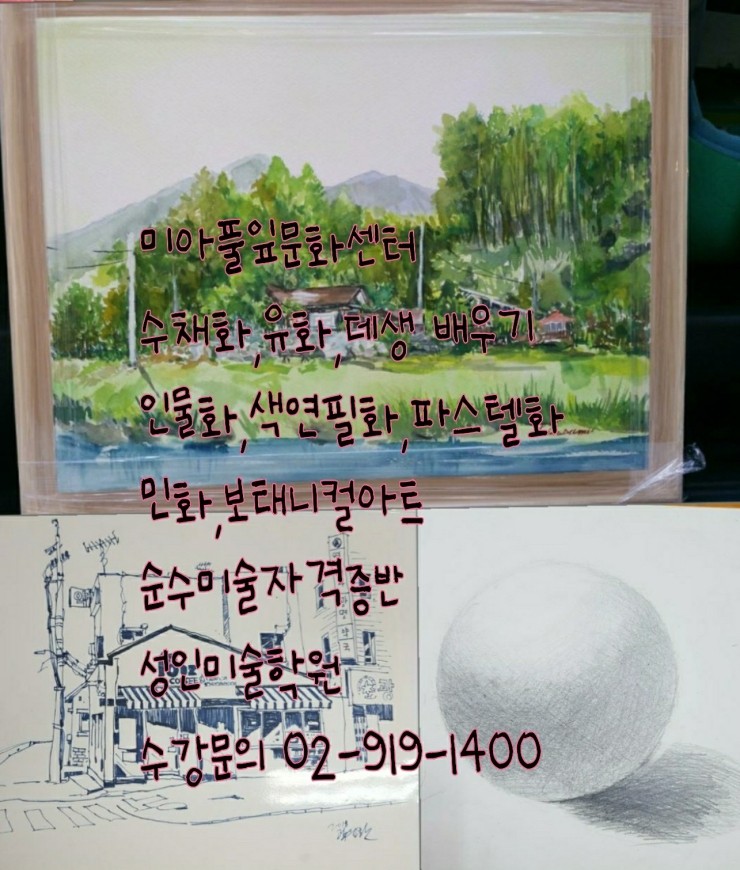 미아풀잎문화센터
수채화,유화,데생 배우기
인물화,색연필화,파스텔화
민화,보태니컬아트
순수미술자격증반
성인미술학원
수강문의 02-919-1400
COFFEE